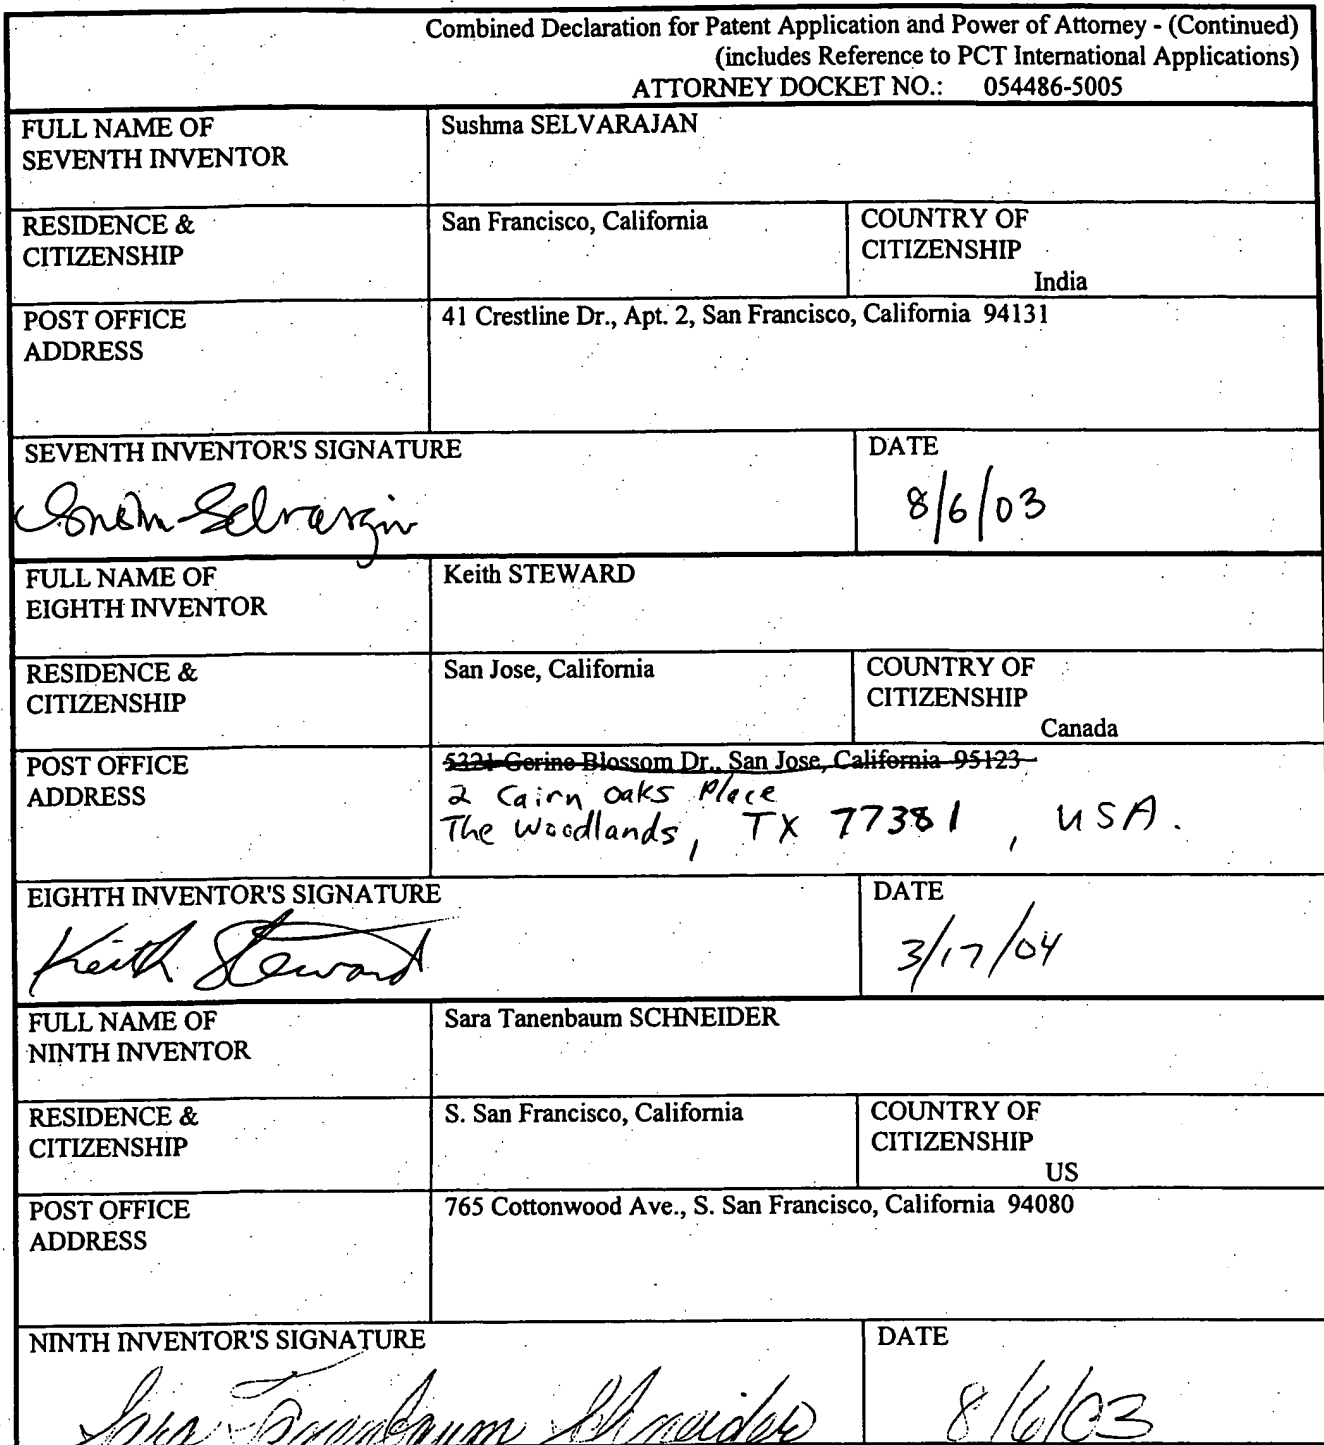 Combined Declaration for Patent Application and Power of Attorney - (Continued)
(includes Reference to PCT International Applications)
ATTORNEY DOCKET NO.: 054486-5005
FULL NAME OF
SEVENTH INVENTOR
Sushma SELVARAJAN
RESIDENCE &
CITIZENSHIP
San Francisco, California
COUNTRY OF
CITIZENSHIP
India
POST OFFICE
ADDRESS
41 Crestline Dr., Apt. 2, San Francisco, California 94131
SEVENTH INVENTOR'S SIGNATURE
DATE
8/6/03
FULL NAME OF
EIGHTH INVENTOR
Keith STEWARD
RESIDENCE &
CITIZENSHIP
San Jose, California
COUNTRY OF
CITIZENSHIP
Canada
POST OFFICE
ADDRESS
5321 Gerine Blossom Dr., San Jose, California 95123
2 Cairn Oaks Place
The Woodlands, TX 77381, USA.
EIGHTH INVENTOR'S SIGNATURE
Keith Steward
DATE
3/17/04
FULL NAME OF
NINTH INVENTOR
Sara Tanenbaum SCHNEIDER
RESIDENCE &
CITIZENSHIP
S. San Francisco, California
COUNTRY OF
CITIZENSHIP
US
POST OFFICE
ADDRESS
765 Cottonwood Ave., S. San Francisco, California 94080
NINTH INVENTOR'S SIGNATURE
Sara Tanenbaum Schneider
DATE
8/6/03